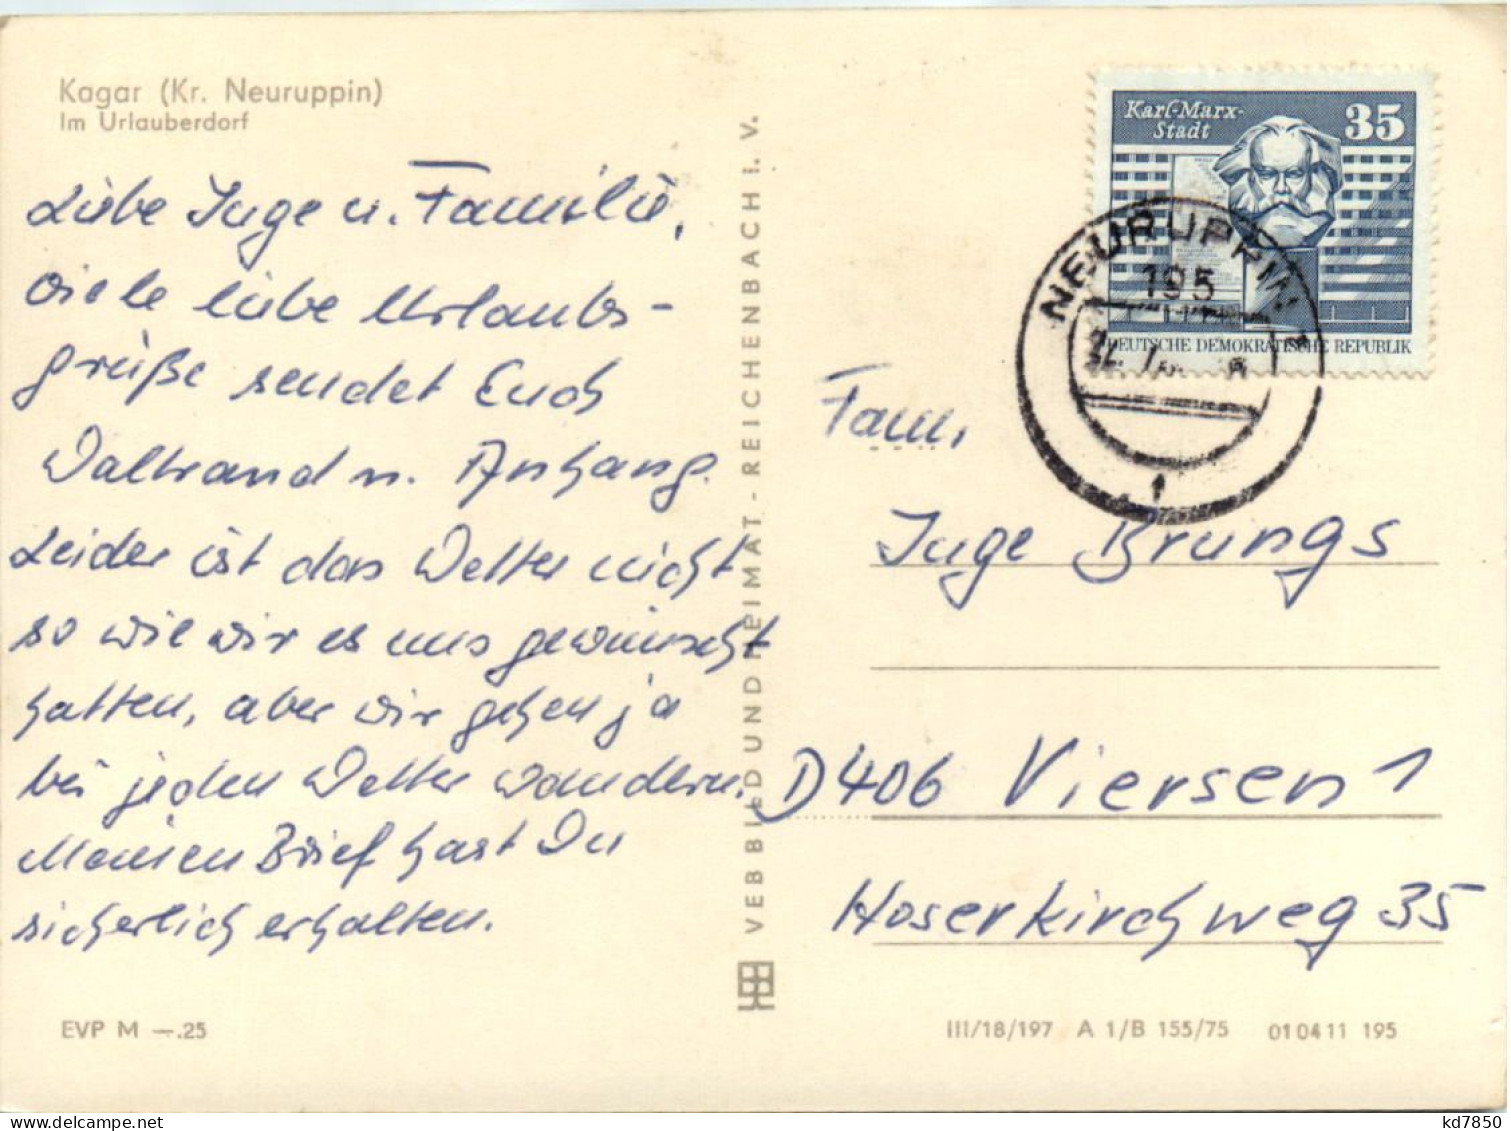 Kagar (Kr. Neuruppin)
Im Urlauberdorf
Liebe Inge u. Familie,
viele liebe Urlaubs-
grüße sendet Euch
Waltraud u. Anhang.
Leider ist das Wetter nicht
so wie wir es uns gewünscht
hatten, aber wir gehen ja
bei jeden Wetter wandern.
Meinen Brief hast Du
sicherlich erhalten.
EVP M —.25
VEB BILD UND HEIMAT - REICHENBACH I. V.
Karl-Marx-
Stadt
35
DEUTSCHE DEMOKRATISCHE REPUBLIK
NEURUPPIN 1
195
Fam.
Inge Brungs
D406 Viersen 1
Hoserkirchweg 35
III/18/197 A 1/B 155/75 01 04 11 195
kd7850